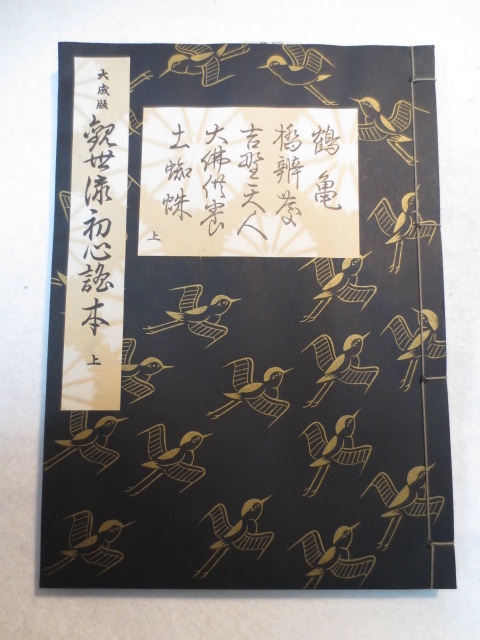 鶴亀
橋辨慶
吉野天人
大佛供養
土蜘蛛
上
大成版
観世流初心謡本
上